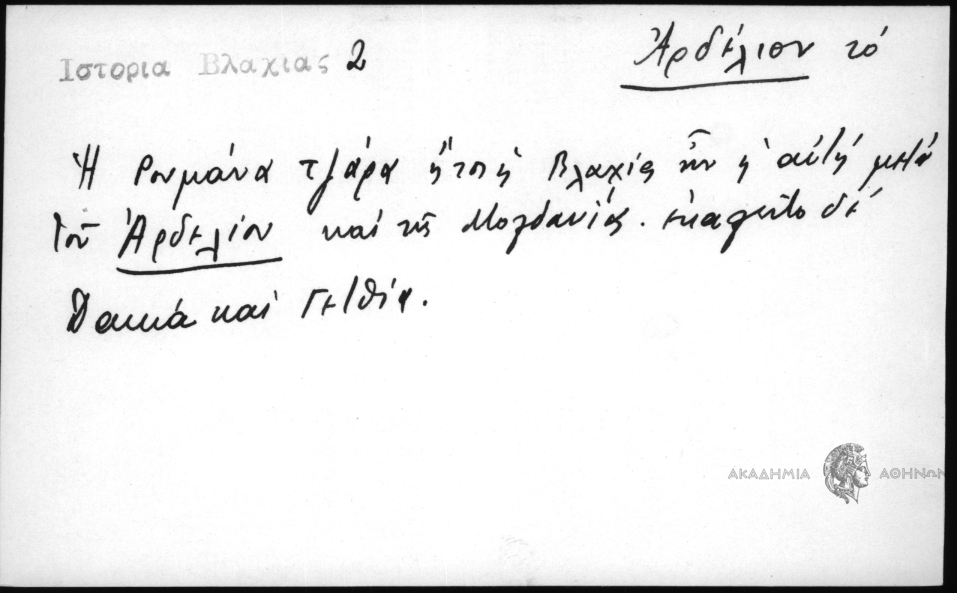 Ιστορια Βλαχιας 2
Ἀρδέλιον τό
Ἡ Ρουμάνα τζάρα ἤτοι ἡ Βλαχία ἦν ἡ αὐτή μετά
τοῦ Ἀρδελίου καί τῆς Μολδαυίας. ἐκαλεῖτο δέ
Δακία καί Γετθία.
ΑΚΑΔΗΜΙΑ ΑΘΗΝΩΝ